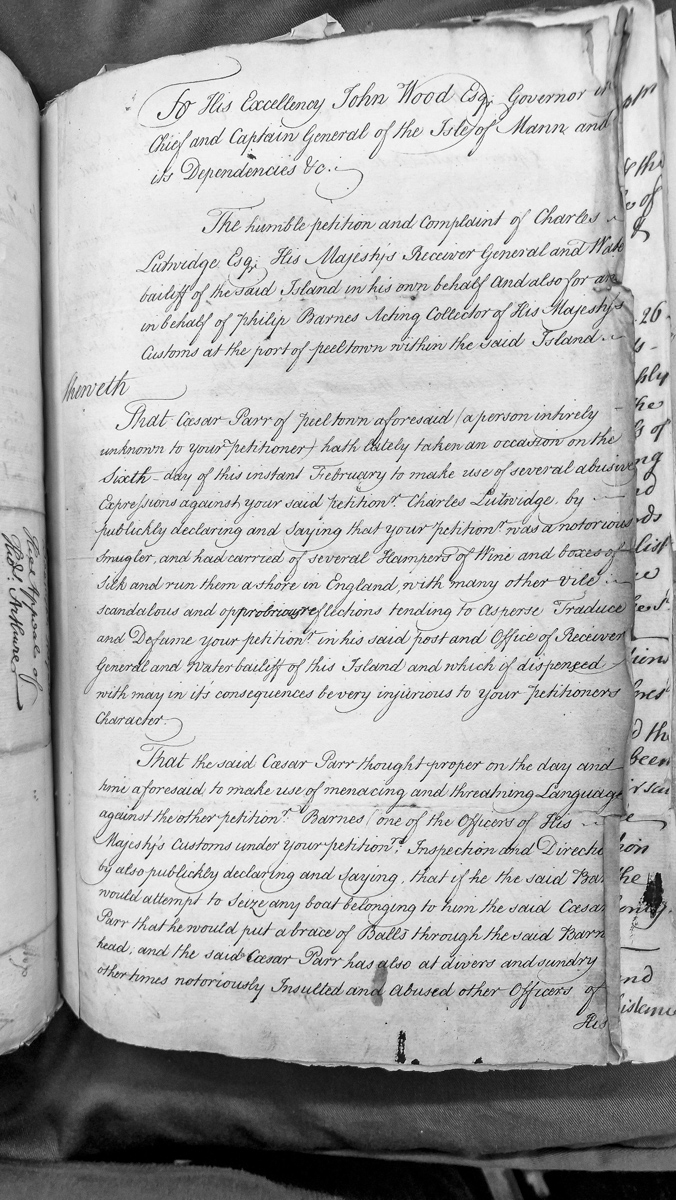 To His Excellency John Wood Esqr. Governor in
Chief and Captain General of the Isle of Mann and
its Dependencies &c.
The humble petition and Complaint of Charles
Lutwidge Esqr. His Majestys Receiver General and Wate
bailiff of the said Island in his own behalf And also for and
in behalf of Philip Barnes Acting Collector of His Majesty's
Customs at the port of peeltown within the said Island.
Sheweth
That Cæsar Parr of peeltown aforesaid (a person intirely
unknown to your petitioner) hath lately taken an occasion on the
Sixth day of this instant February to make use of several abusive
Expressions against your said petitionr. Charles Lutwidge, by
publickly declaring and saying that your petitionr. was a notorious
Smugler, and had carried of several Hampers of Wine and boxes of
Silk and run them a shore in England, with many other vile
scandalous and opprobrious reflections tending to Asperse Traduce
and Defame your petitionr. in his said post and Office of Receiver
General and Water bailiff of this Island and which if dispenced
with may in it's consequences be very injurious to your Petitioners
Character.
That the said Cæsar Parr thought proper on the day and
time aforesaid to make use of menacing and threatning Language
against the other petitionr. Barnes (one of the Officers of His
Majesty's Customs under your petitionrs. Inspection and Directi
by also publickly declaring and saying, that if he the said Bar
would attempt to Seize any boat belonging to him the said Cæsar
Parr that he would put a brace of Balls through the said Barn
head, and the said Cæsar Parr has also at divers and sundry
other times notoriously Insulted and abused other Officers of
His
these Appeal of
26
the
of
and
been